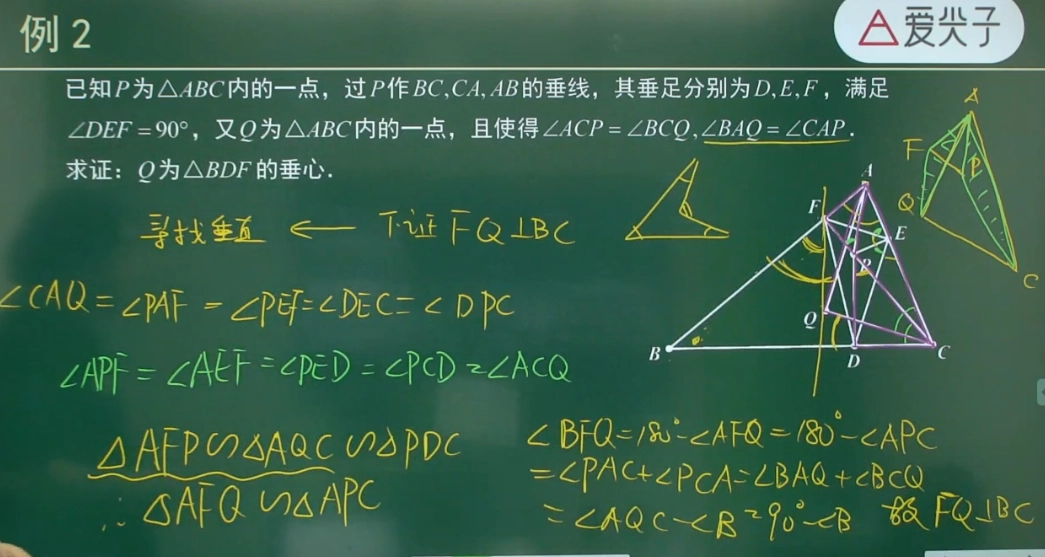 例 2
爱尖子
已知P为△ABC内的一点，过P作BC,CA,AB的垂线，其垂足分别为D,E,F，满足
∠DEF=90°，又Q为△ABC内的一点，且使得∠ACP=∠BCQ,∠BAQ=∠CAP.
求证：Q为△BDF的垂心.
寻找垂直 ← 下证 FQ⊥BC
∠CAQ=∠PAF=∠PEF=∠DEC=∠DPC
∠APF=∠AEF=∠PED=∠PCD=∠ACQ
△AFP∽△AQC∽△PDC
∴△AFQ∽△APC
∠BFQ=180°-∠AFQ=180°-∠APC
=∠PAC+∠PCA=∠BAQ+∠BCQ
=∠AQC-∠B=90°-∠B 故FQ⊥BC
A
F
E
P
Q
B
D
C
A
F
P
Q
C